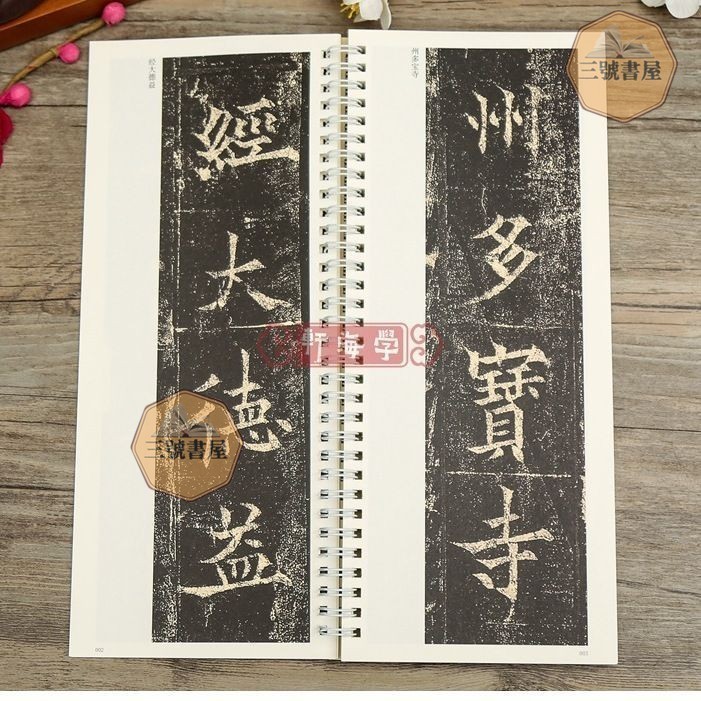 经大德益
經
大
德
益
002
州多宝寺
州
多
寶
寺
003
三號書屋
三號書屋
學海軒